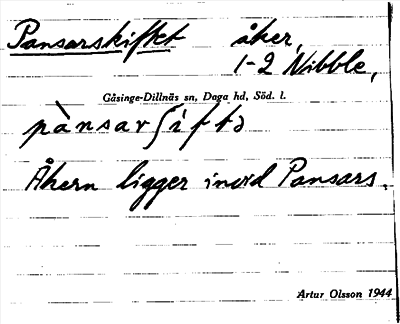 Pansarskiftet åker,
1-2 Nibble,
Gåsinge-Dillnäs sn, Daga hd, Söd. l.
pànsarʃiftə
Åkern ligger invid Pansars.
Artur Olsson 1944